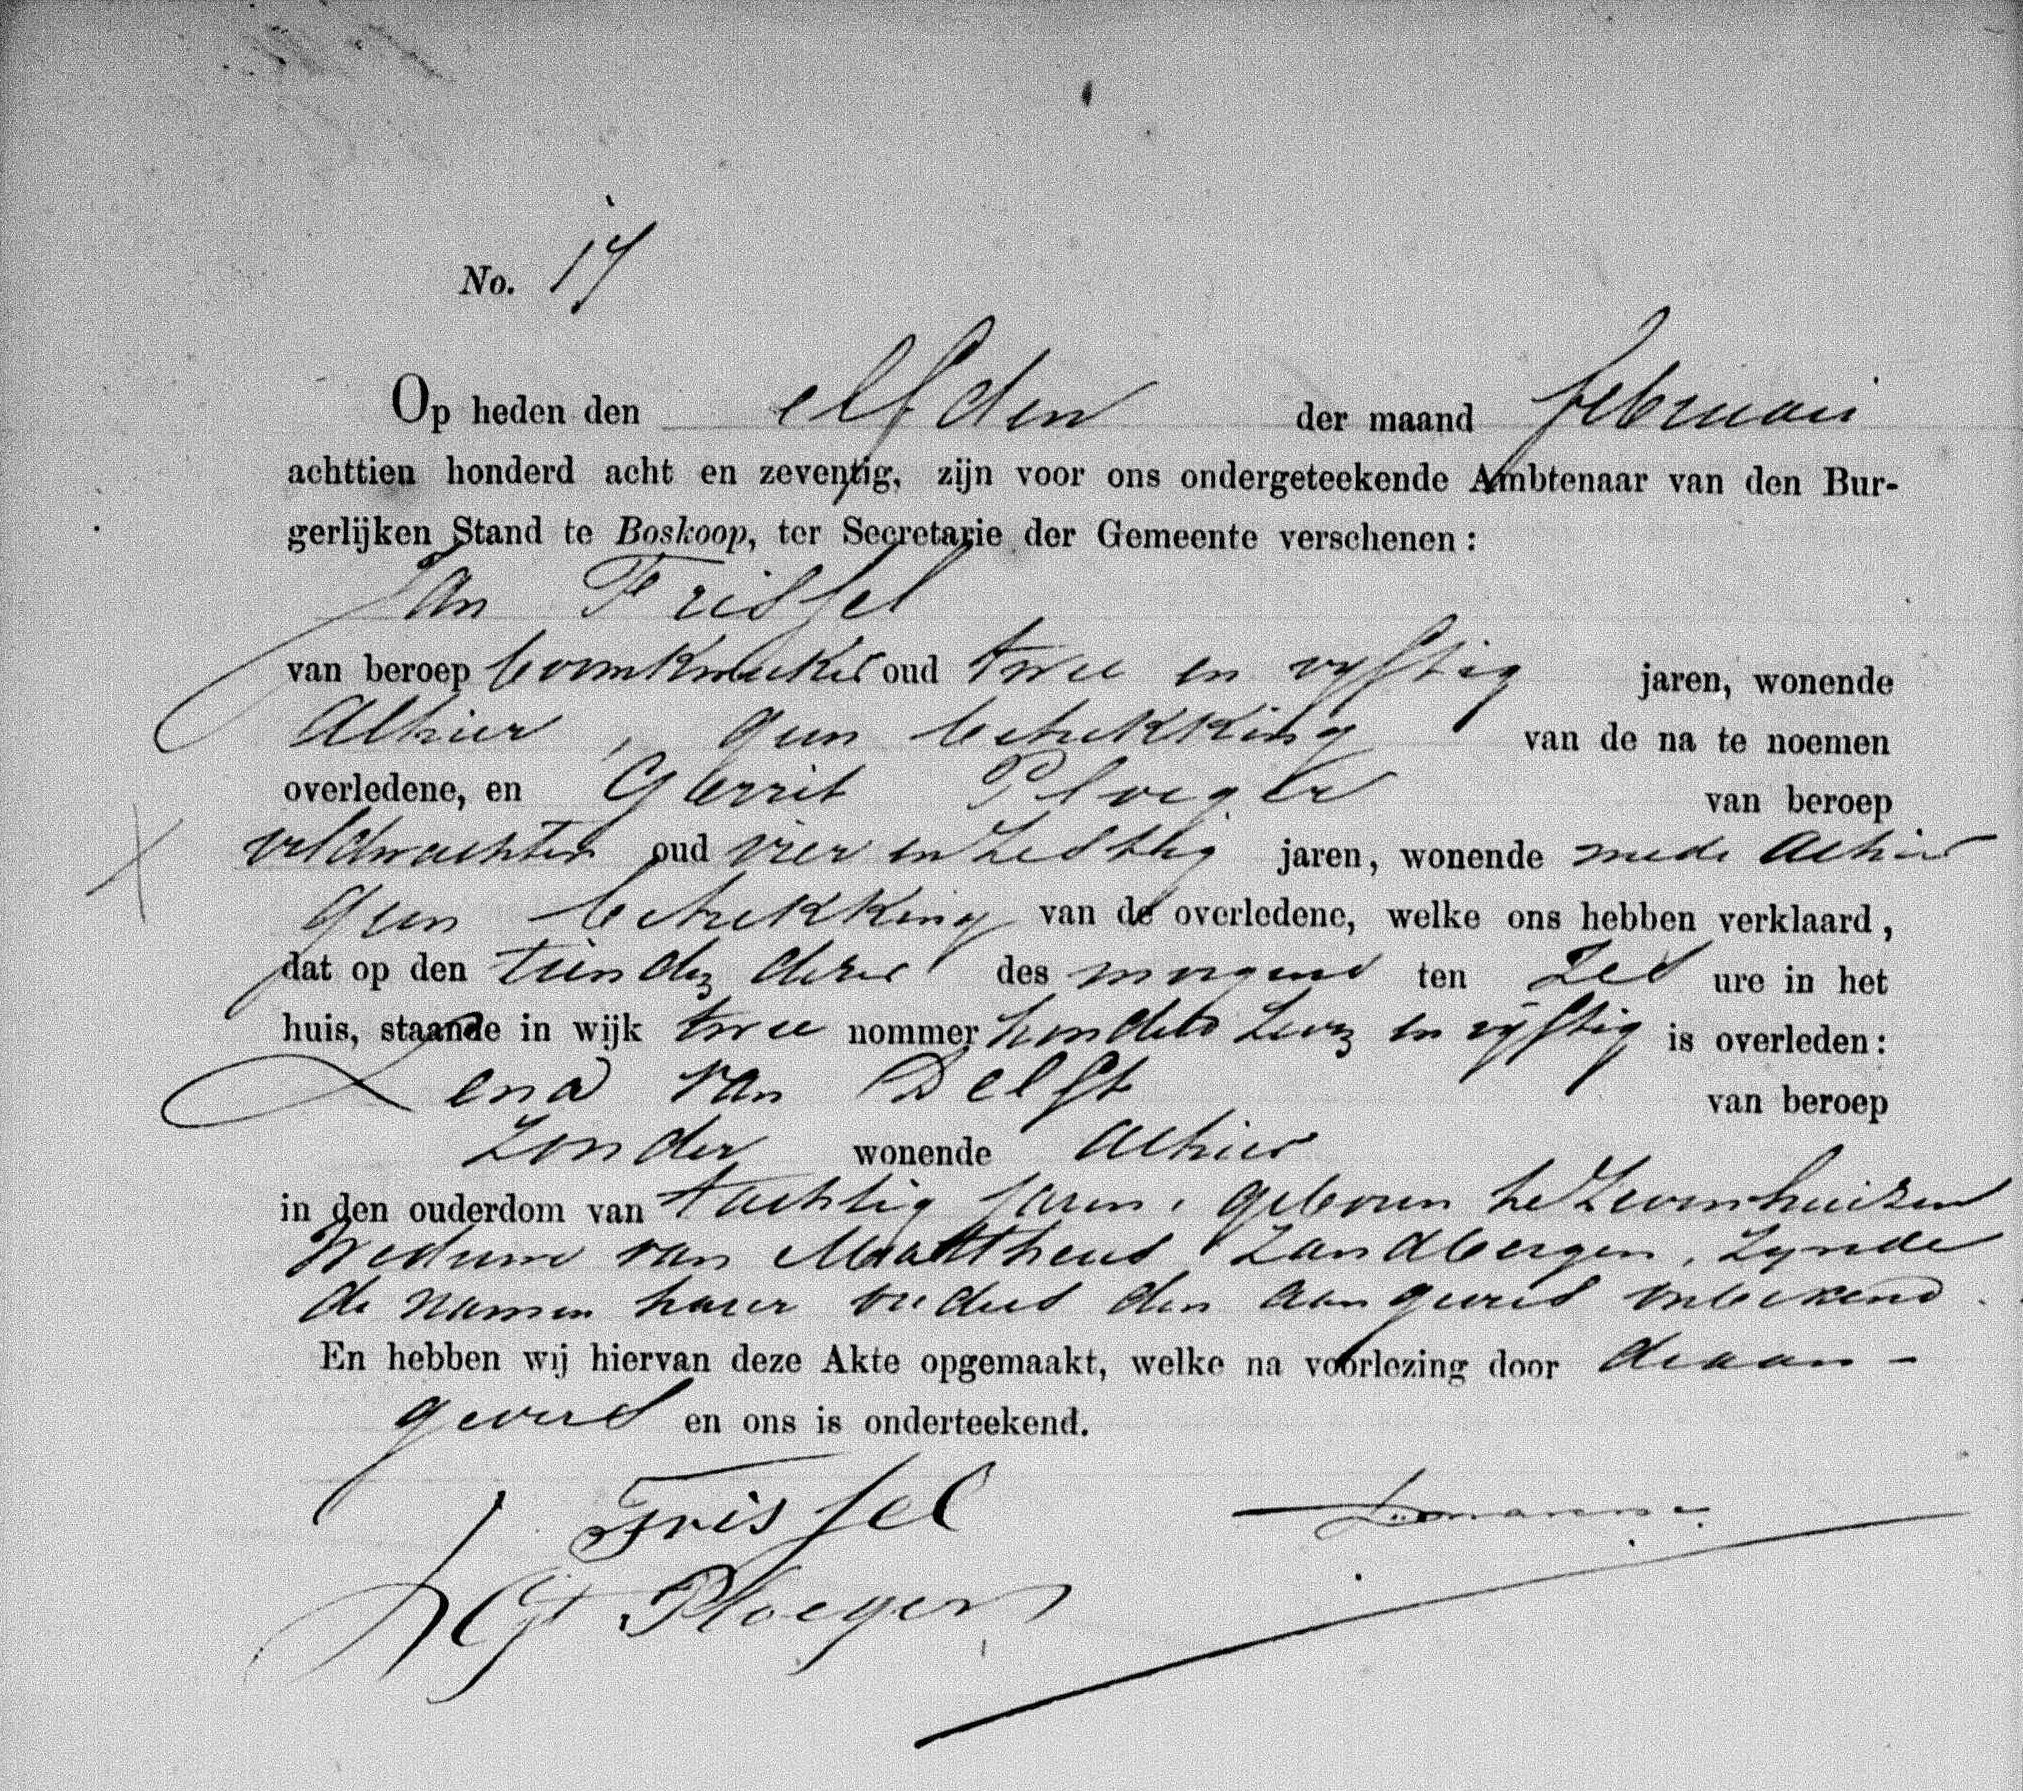 No. 17
Op heden den elfden der maand februari
achttien honderd acht en zeventig, zijn voor ons ondergeteekende Ambtenaar van den Bur-
gerlijken Stand te Boskoop, ter Secretarie der Gemeente verschenen:
Jan Frissel
van beroep boomkweeker oud twee en vyftig jaren, wonende
Alhier, geen betrekking van de na te noemen
overledene, en Gerrit Ploeger van beroep
veldwachter oud vier en zestig jaren, wonende mede alhier
geen betrekking van de overledene, welke ons hebben verklaard,
dat op den tienden dezer des morgens ten zes ure in het
huis, staande in wijk twee nommer honderd zeven en vyftig is overleden:
Lena van Delft van beroep
zonder wonende alhier
in den ouderdom van tachtig jaren, geboren te Zevenhuizen
Weduwe van Mattheus Zandbergen, zynde
de namen harer ouders den aangevers onbekend.
En hebben wij hiervan deze Akte opgemaakt, welke na voorlezing door de aan-
gevers en ons is onderteekend.
J Frissel
Gt Ploeger